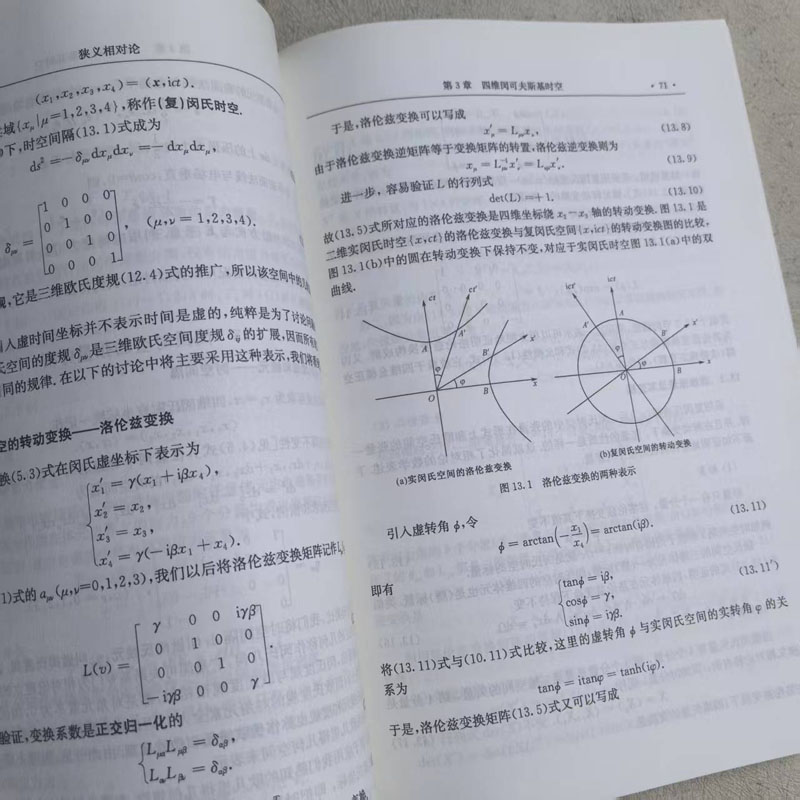 狭义相对论
(x₁,x₂,x₃,x₄)=(x,ict).
域{xμ|μ=1,2,3,4},称作(复)闵氏时空.
下,时空间隔(13.1)式成为
ds²=−δμν dxμdxν=− dxμdxμ,
δμν = [1 0 0 0
0 1 0 0
0 0 1 0
0 0 0 1], (μ,ν = 1,2,3,4).
它是三维欧氏度规(12.4)式的推广,所以该空间中的
入虚时间坐标并不表示时间是虚的,纯粹是为了讨论
氏空间的度规δμν是三维欧氏空间度规δij的扩展,因而所有
同的规律.在以下的讨论中将主要采用这种表示,我们将
空的转动变换——洛伦兹变换
换(5.3)式在闵氏虚坐标下表示为
{x′₁ = γ(x₁+iβx₄),
x′₂ = x₂,
x′₃ = x₃,
x′₄ = γ(−iβx₁+x₄).
1)式的aμν(μ,ν=0,1,2,3),我们以后将洛伦兹变换矩阵记作L,
L(v) = [γ 0 0 iγβ
0 1 0 0
0 0 1 0
−iγβ 0 0 γ].
验证,变换系数是正交归一化的
{LμαLμβ = δαβ,
LαμLβμ = δαβ.
第3章 四维闵可夫斯基时空 ·71·
于是,洛伦兹变换可以写成
x′μ = Lμνxν, (13.8)
由于洛伦兹变换逆矩阵等于变换矩阵的转置,洛伦兹逆变换则为
xμ = L⁻¹μνx′ν = Lνμx′ν. (13.9)
进一步,容易验证L的行列式
det(L) =+1. (13.10)
故(13.5)式所对应的洛伦兹变换是四维坐标绕x₁−x₄轴的转动变换.图13.1是
二维实闵氏时空{x,ct}的洛伦兹变换与复闵氏空间{x,ict}的转动变换图的比较,
图13.1(b)中的圆在转动变换下保持不变,对应于实闵氏时空图13.1(a)中的双
曲线.
ct ct′ x′ A A′ B′ φ φ O B x
ict ict′ x′ A A′ B′ φ φ O B x
(a)实闵氏空间的洛伦兹变换
(b)复闵氏空间的转动变换
图13.1 洛伦兹变换的两种表示
引入虚转角ϕ,令
ϕ = arctan(−x₁/x₄)= arctan(iβ). (13.11)
即有
{tanϕ = iβ,
cosϕ = γ,
sinϕ = iγβ. (13.11′)
将(13.11)式与(10.11)式比较,这里的虚转角ϕ与实闵氏空间的实转角φ的关
系为
tanϕ = itanφ = tanh(iφ).
于是,洛伦兹变换矩阵(13.5)式又可以写成